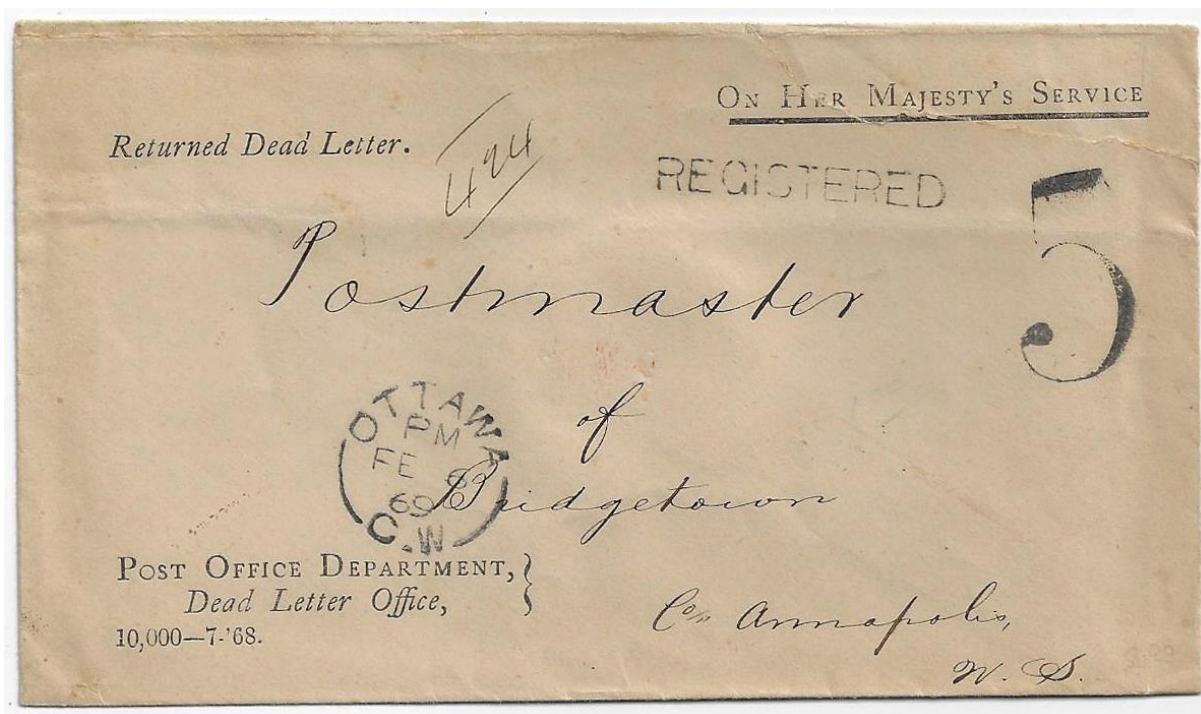 ON HER MAJESTY'S SERVICE
Returned Dead Letter.
424
REGISTERED
5
Postmaster
of
Bridgetown
Co. Annapolis,
N. S.
OTTAWA
PM
FE 6
69
C.W
POST OFFICE DEPARTMENT,
Dead Letter Office,
10,000—7-'68.